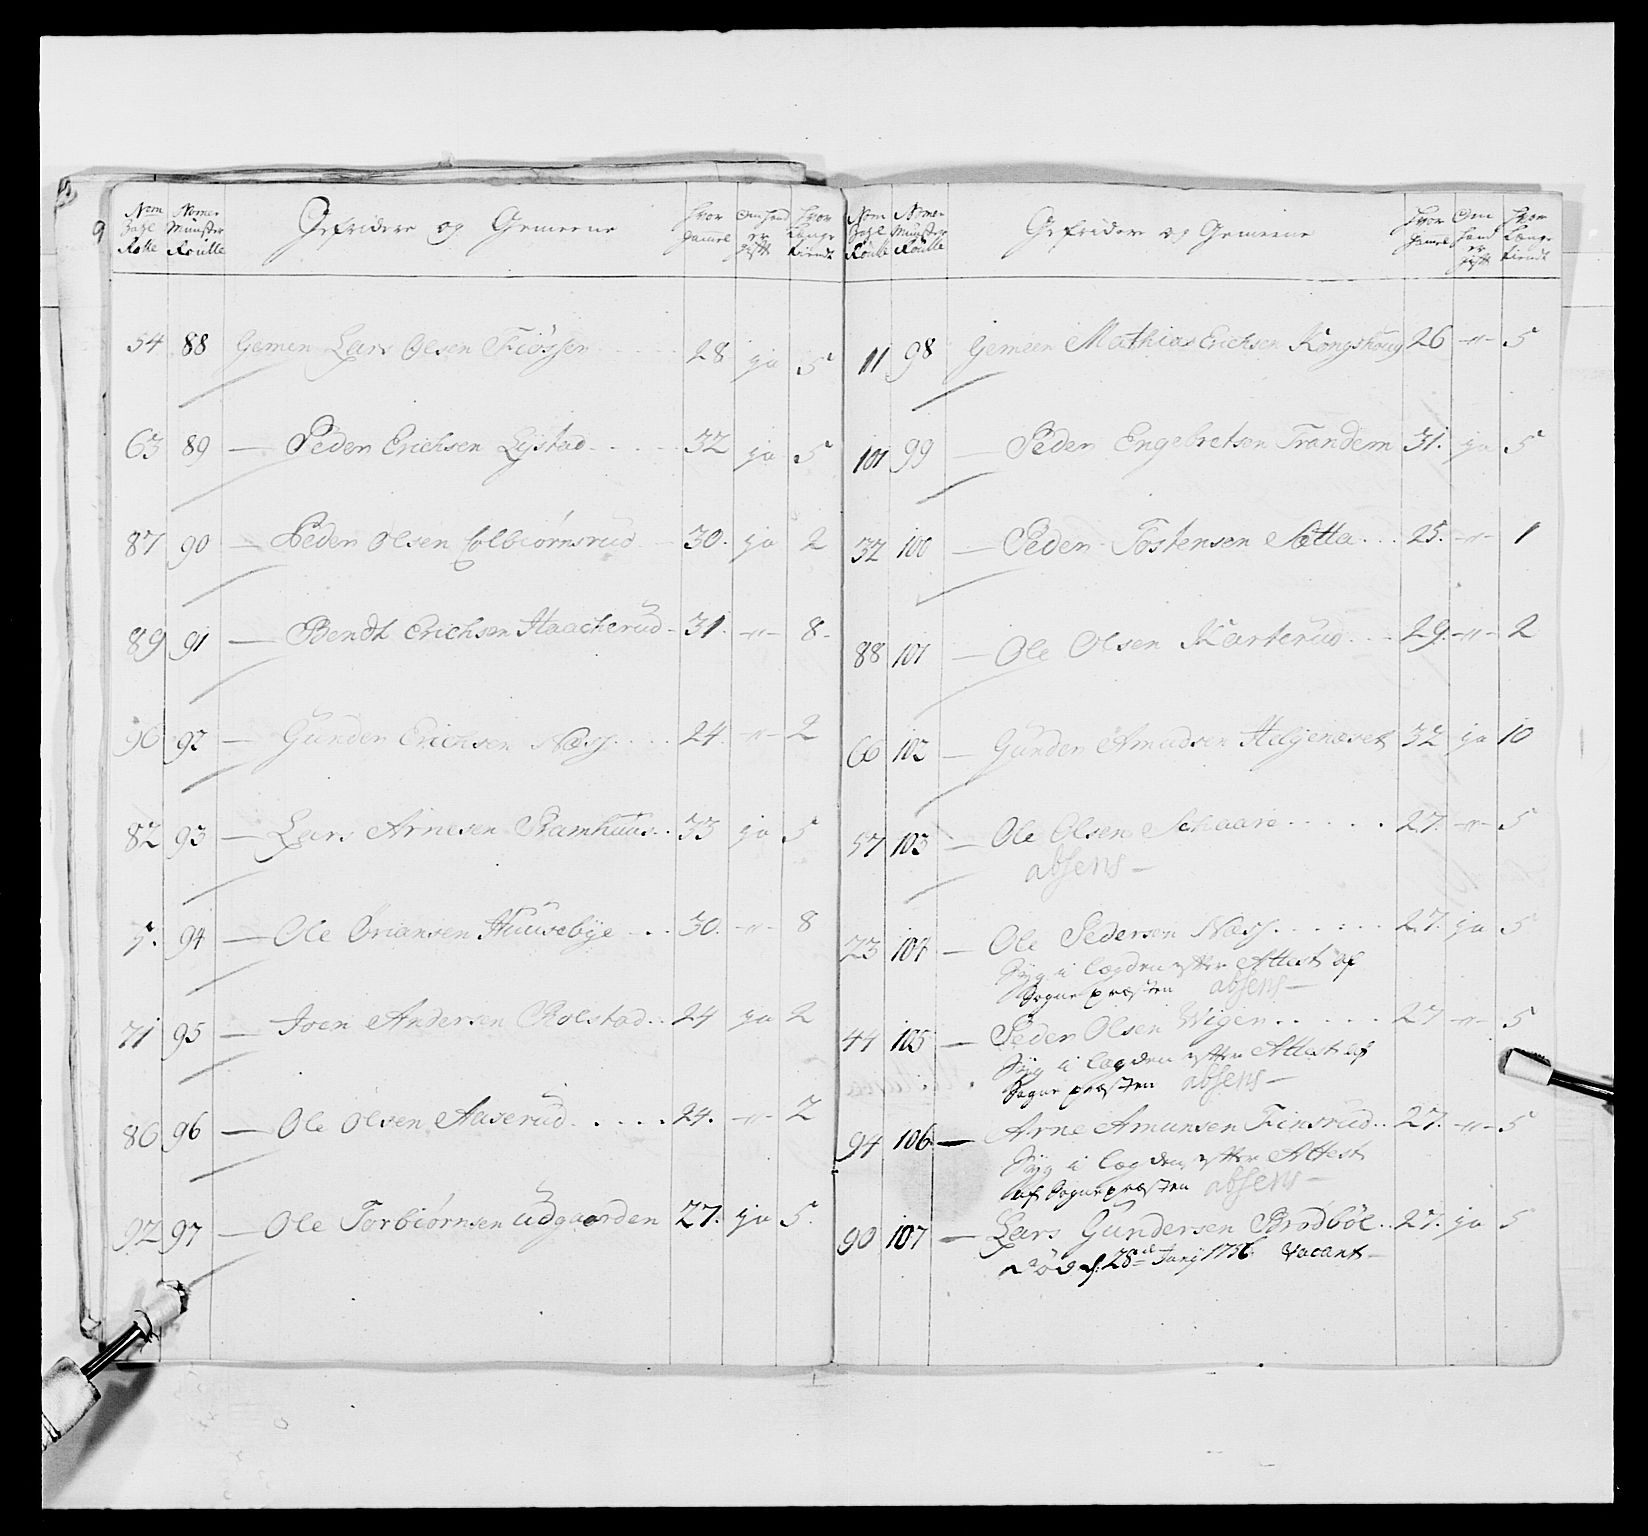 9
Nom Zahl Rolle | Nomer Munster Roulle | Gefridere og Gemeene | Hvor gammel | Om hand er gift | Hvor længe tiendt
54 88 Gemen Lars Olsen Fiösser 28 ja 5
63 89 — Peder Erichsen Lystad 32 ja 5
87 90 — Peder Olsen Colbiørnsrud 30. ja 2
89 91 — Bendt Erichsen Haacherud 31. -"- 8
90 92 — Gunder Erichsen Næss 24. -"- 2
82 93 — Lars Arnesen Ramhuus 33 ja 5
5. 94 — Ole Briansen Huusebÿe 30. -"- 8
71 95 — Joen Andersen Rolstad 24 ja 2
86 96 — Ole Olsen Aaserud 24. -"- 2
92 97 — Ole Torbiørnsen Udgaarden 27. ja 5.
Nom Zahl Roulle | Nomer Munster Roulle | Gefridere og Gemeene | Hvor gammel | Om hand er gift | Hvor længe tiendt
11 98 Gemeen Mathias Erichsen Kongshoug 26 -"- 5
101 99 — Peder Engebretsen Trandem 31. ja 5
32 100 — Peder Tostensen Sætta 25. -"- 1
88 101 — Ole Olsen Karterud 29. -"- 2
66 102 — Gunder Amudsen Helgenæset 32 ja 10
57 103 — Ole Olsen Schaare 27. -"- 5
absens —
23 104 — Ole Pedersen Næss 27. ja 5
Syg i lægden efter Attest af
Sogne præsten absens —
44 105 — Peder Olsen Wigen 27 -"- 5
Syg i lægden efter Attest af
Sogne præsten absens —
94 106 — Arne Amunsen Finsrud 27. -"- 5
Syg i lægden efter Attest
af Sognepræsten absens —
90 107 — Lars Gundersen Brodböl 27. ja 5
Død d. 28de Junÿ 1756. Vacant —